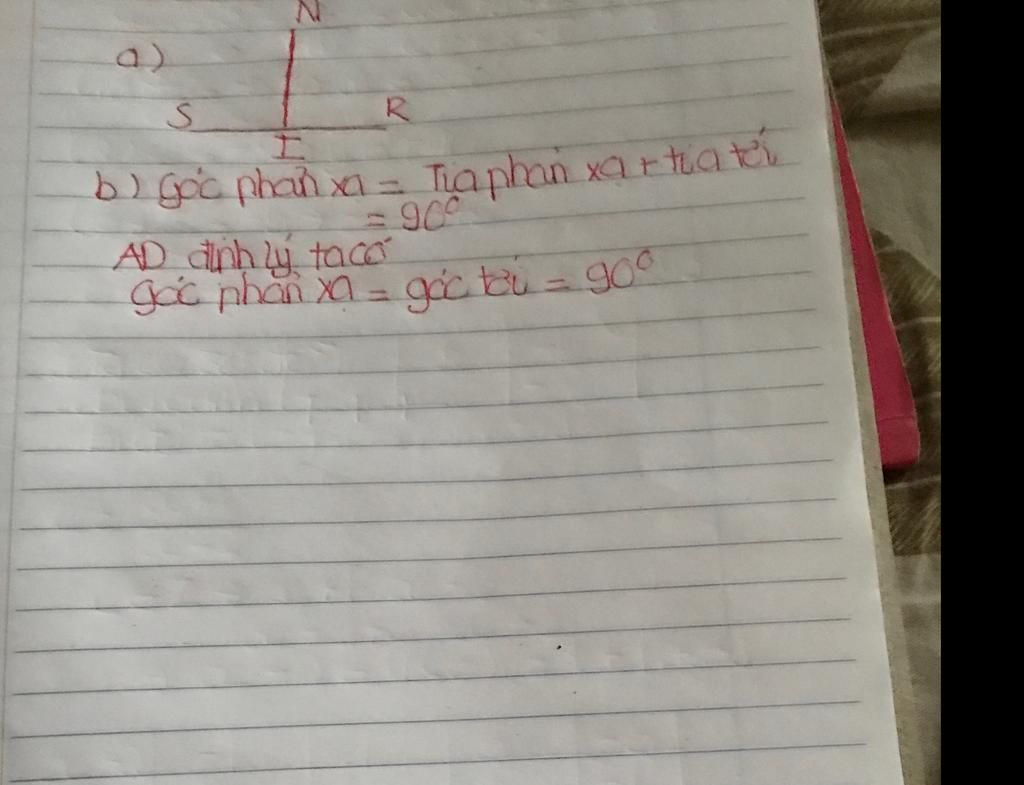 N
a)
S R
I
b) Góc phản xạ = Tia phản xạ + tia tới
= 90°
AD định lý ta có
góc phản xạ = góc tới = 90°